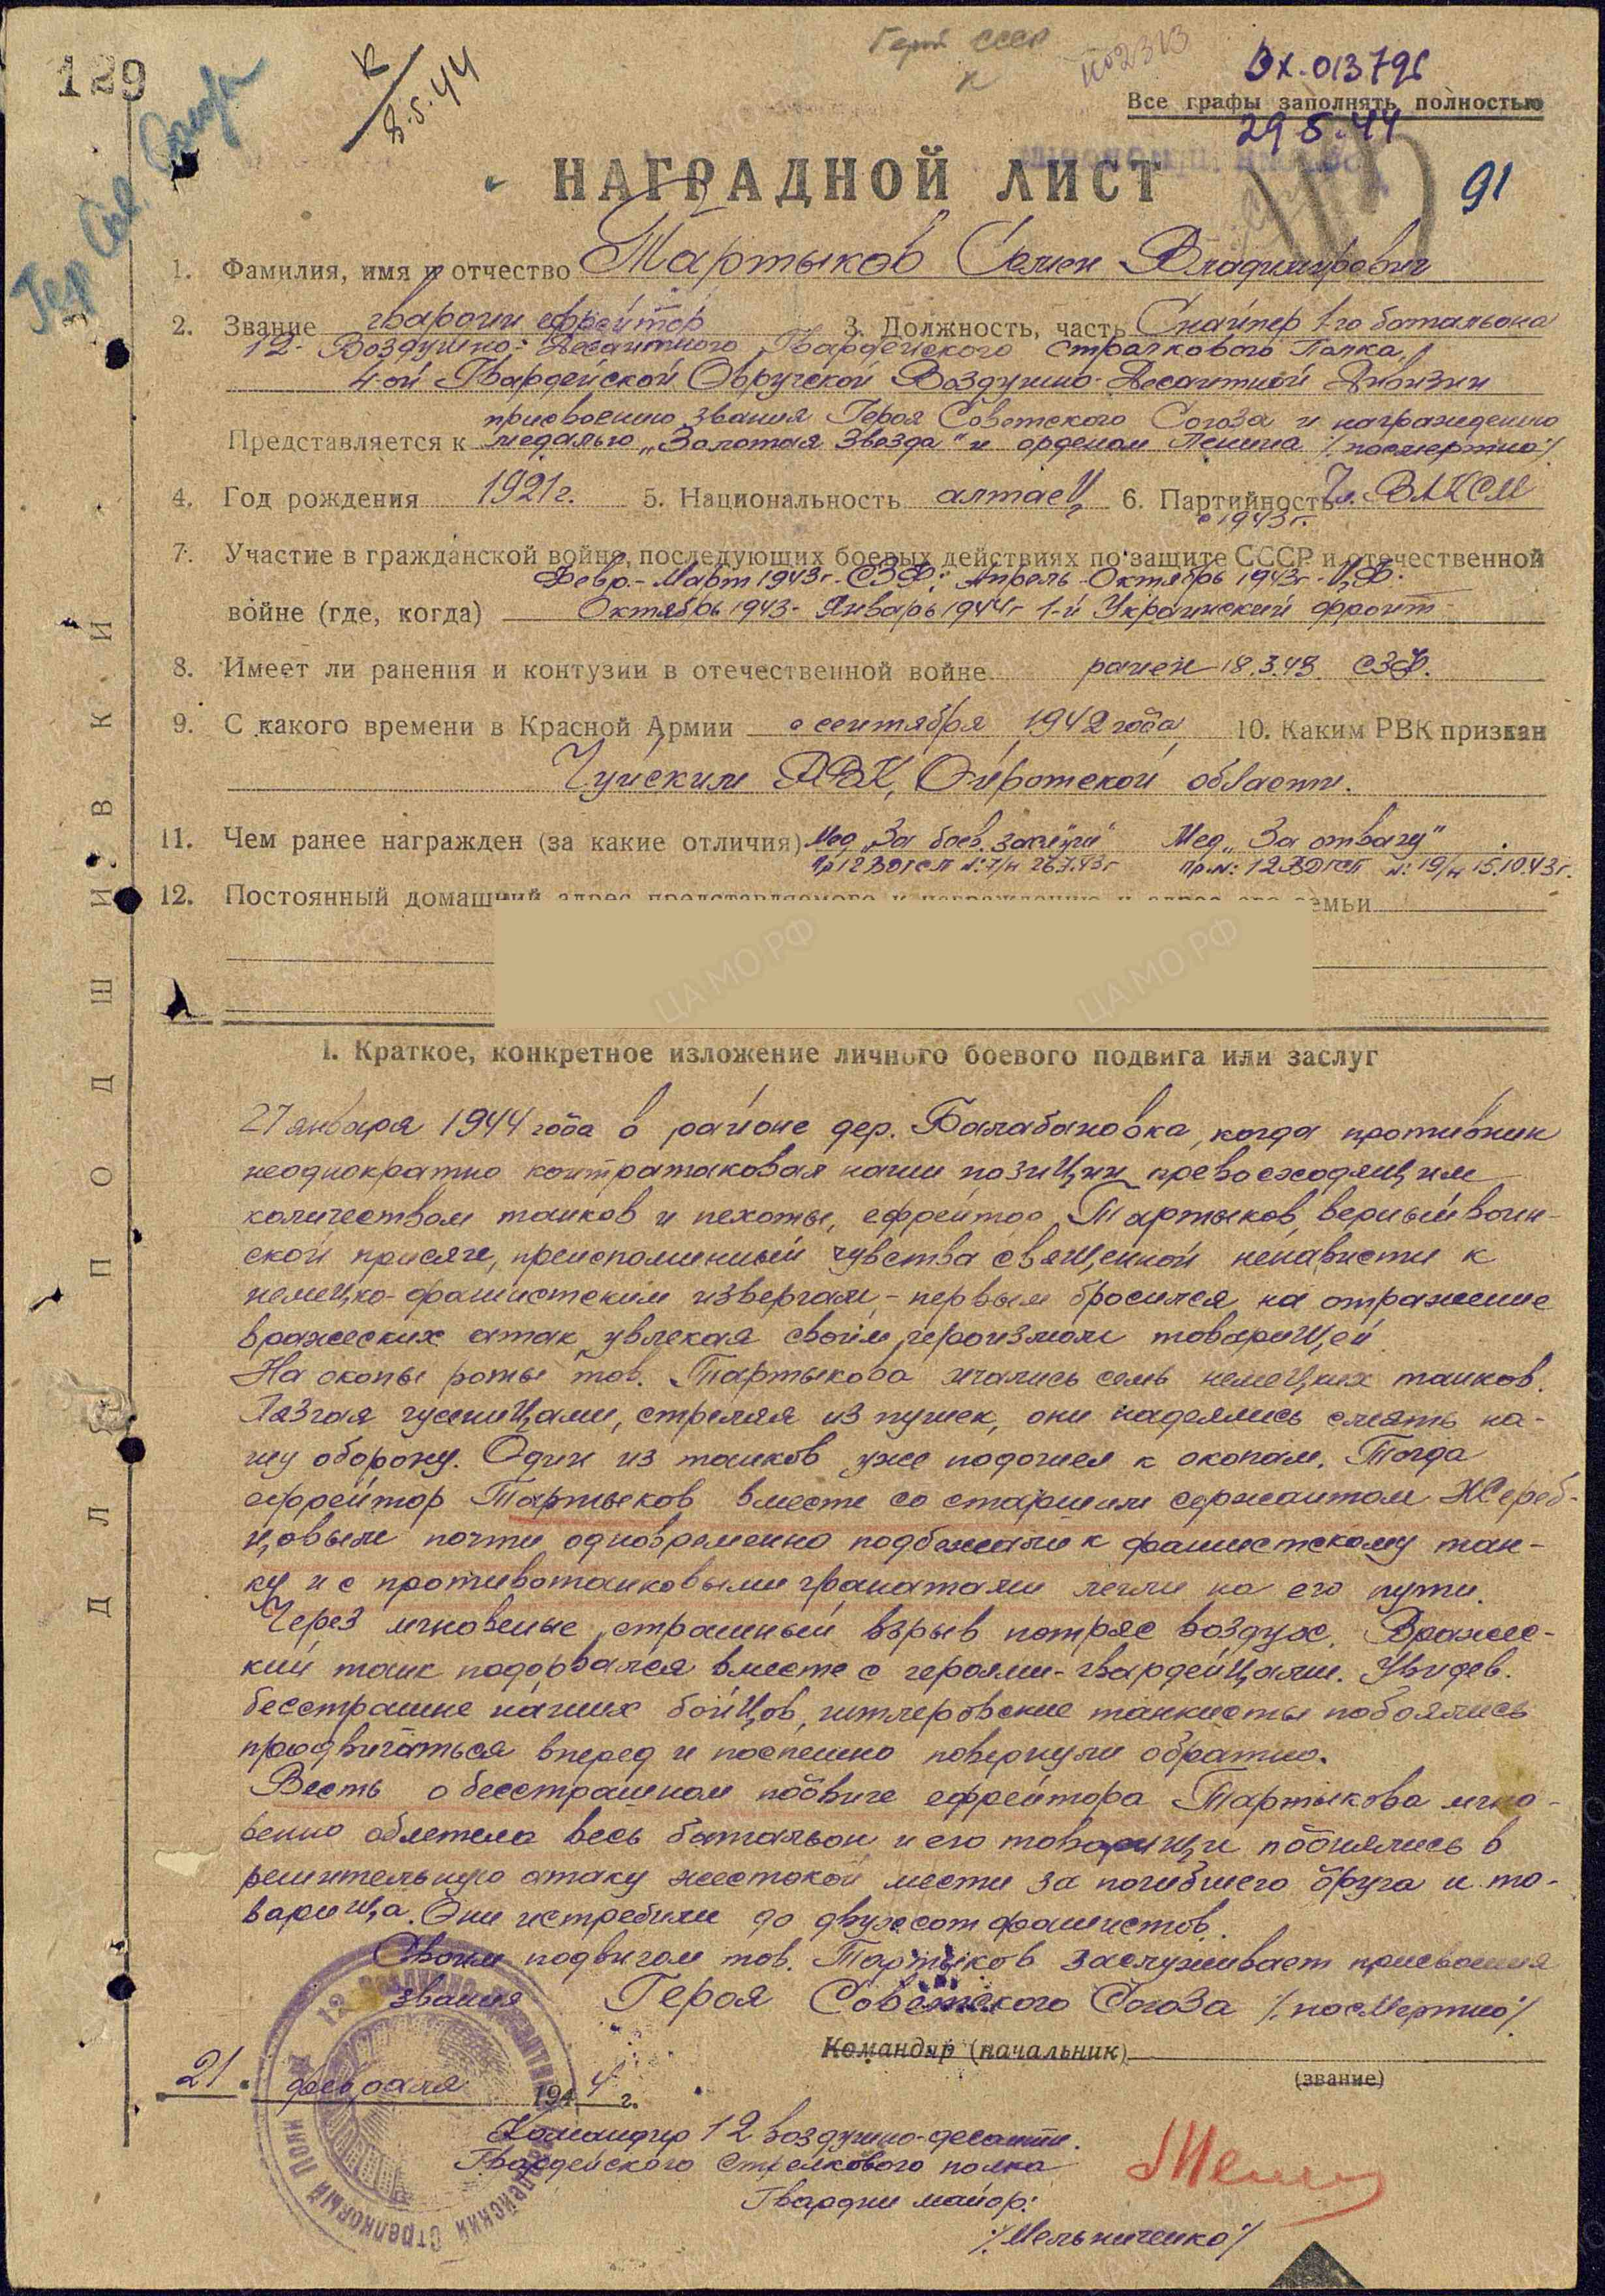 129
8.5.44
Герой СССР
Вх-013796
Все графы заполнять полностью
29 5.44
Гер Сов Союза
91
НАГРАДНОЙ ЛИСТ
1. Фамилия, имя и отчество Тартыков Семен Владимирович
2. Звание гвардии ефрейтор 3. Должность, часть Снайпер 1-го батальона
12- Воздушно-Десантного Гвардейского Стрелкового Полка,
4-ой Гвардейской Овручской Воздушно-Десантной Дивизии
присвоению звания Героя Советского Союза и награждению
Представляется к медалью „Золотая Звезда" и орденом Ленина /посмертно/
4. Год рождения 1921г. 5. Национальность алтаец 6. Партийность Чл. ВЛКСМ
с 1943г.
7. Участие в гражданской войне, последующих боевых действиях по защите СССР и отечественной
Февр.-Март 1943г-СЗФ; Апрель-Октябрь 1943г-Ц.Ф.
войне (где, когда) Октябрь 1943- Январь 1944г 1-й Украинский фронт
8. Имеет ли ранения и контузии в отечественной войне ранен 18.3.43 СЗФ.
9. С какого времени в Красной Армии с сентября 1942 года 10. Каким РВК призван
Чуйским РВК, Ойротской области.
11. Чем ранее награжден (за какие отличия) Мед „За боев. заслуги" Мед „За отвагу"
Пр 12 ВДГСП №:7/н 26.7.43г пр.№: 12 ВДГСП №: 19/н 15.10.43г.
12. Постоянный домашний адрес представляемого к награждению и адрес его семьи
ЦА МО РФ ЦА МО РФ
ДЛЯ ПОДШИВКИ
I. Краткое, конкретное изложение личного боевого подвига или заслуг
27 января 1944 года в районе дер. Балабановка, когда противник
неоднократно контратаковал наши позиции превосходящим
количеством танков и пехоты, ефрейтор Тартыков, верный воин-
ской присяге, преисполненный чувства священной ненависти к
немецко-фашистским извергам,- первым бросился на отражение
вражеских атак, увлекая своим героизмом товарищей.
На окопы роты тов. Тартыкова мчались семь немецких танков.
Лязгая гусеницами, стреляя из пушек, они надеялись смять на-
шу оборону. Один из танков уже подошел к окопам. Тогда
ефрейтор Тартыков вместе со старшим сержантом Жереб-
цовым почти одновременно подбежали к фашистскому тан-
ку и с противотанковыми гранатами легли на его пути.
Через мгновенье страшный взрыв потряс воздух. Вражес-
кий танк подорвался вместе с героями-гвардейцами. Увидев
бесстрашие наших бойцов, гитлеровские танкисты побоялись
продвигаться вперед и поспешно повернули обратно.
Весть о бесстрашном подвиге ефрейтора Тартыкова мгно-
венно облетела весь батальон и его товарищи поднялись в
решительную атаку жестокой мести за погибшего друга и то-
варища. Они истребили до двухсот фашистов.
Своим подвигом тов. Тартыков заслуживает присвоения
звания Героя Советского Союза /посмертно/
Командир (начальник)
(звание)
21 февраля 1944 г.
Командир 12 воздушно-десантн.
Гвардейского Стрелкового полка
Гвардии майор:
/Мельниченко/